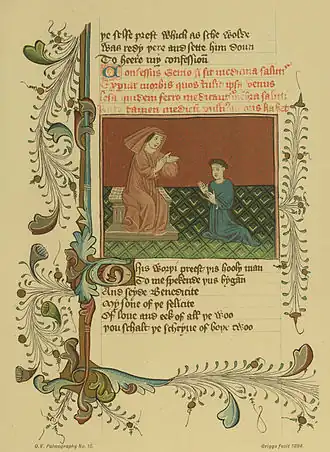 ye selfe prest which as sche wolde
Was redy yere and sette him doun
To heere my confession
Confessus Genio si sit medicina salutis
Expiar morbis quos tulit ipsa venus
lesa quidem ferro medicantur membra saluti
Raro tamen medicum vulnus amoris habet
This worþi preest þis hooly man
To me spekende þus bygan
And seyde Benedicite
My sone of þe felicite
Of loue and eek of alle þe woo
þou schalt þe schryue of boþe twoo
O. E. Palæography No. 12.
Griggs facsit 1894.